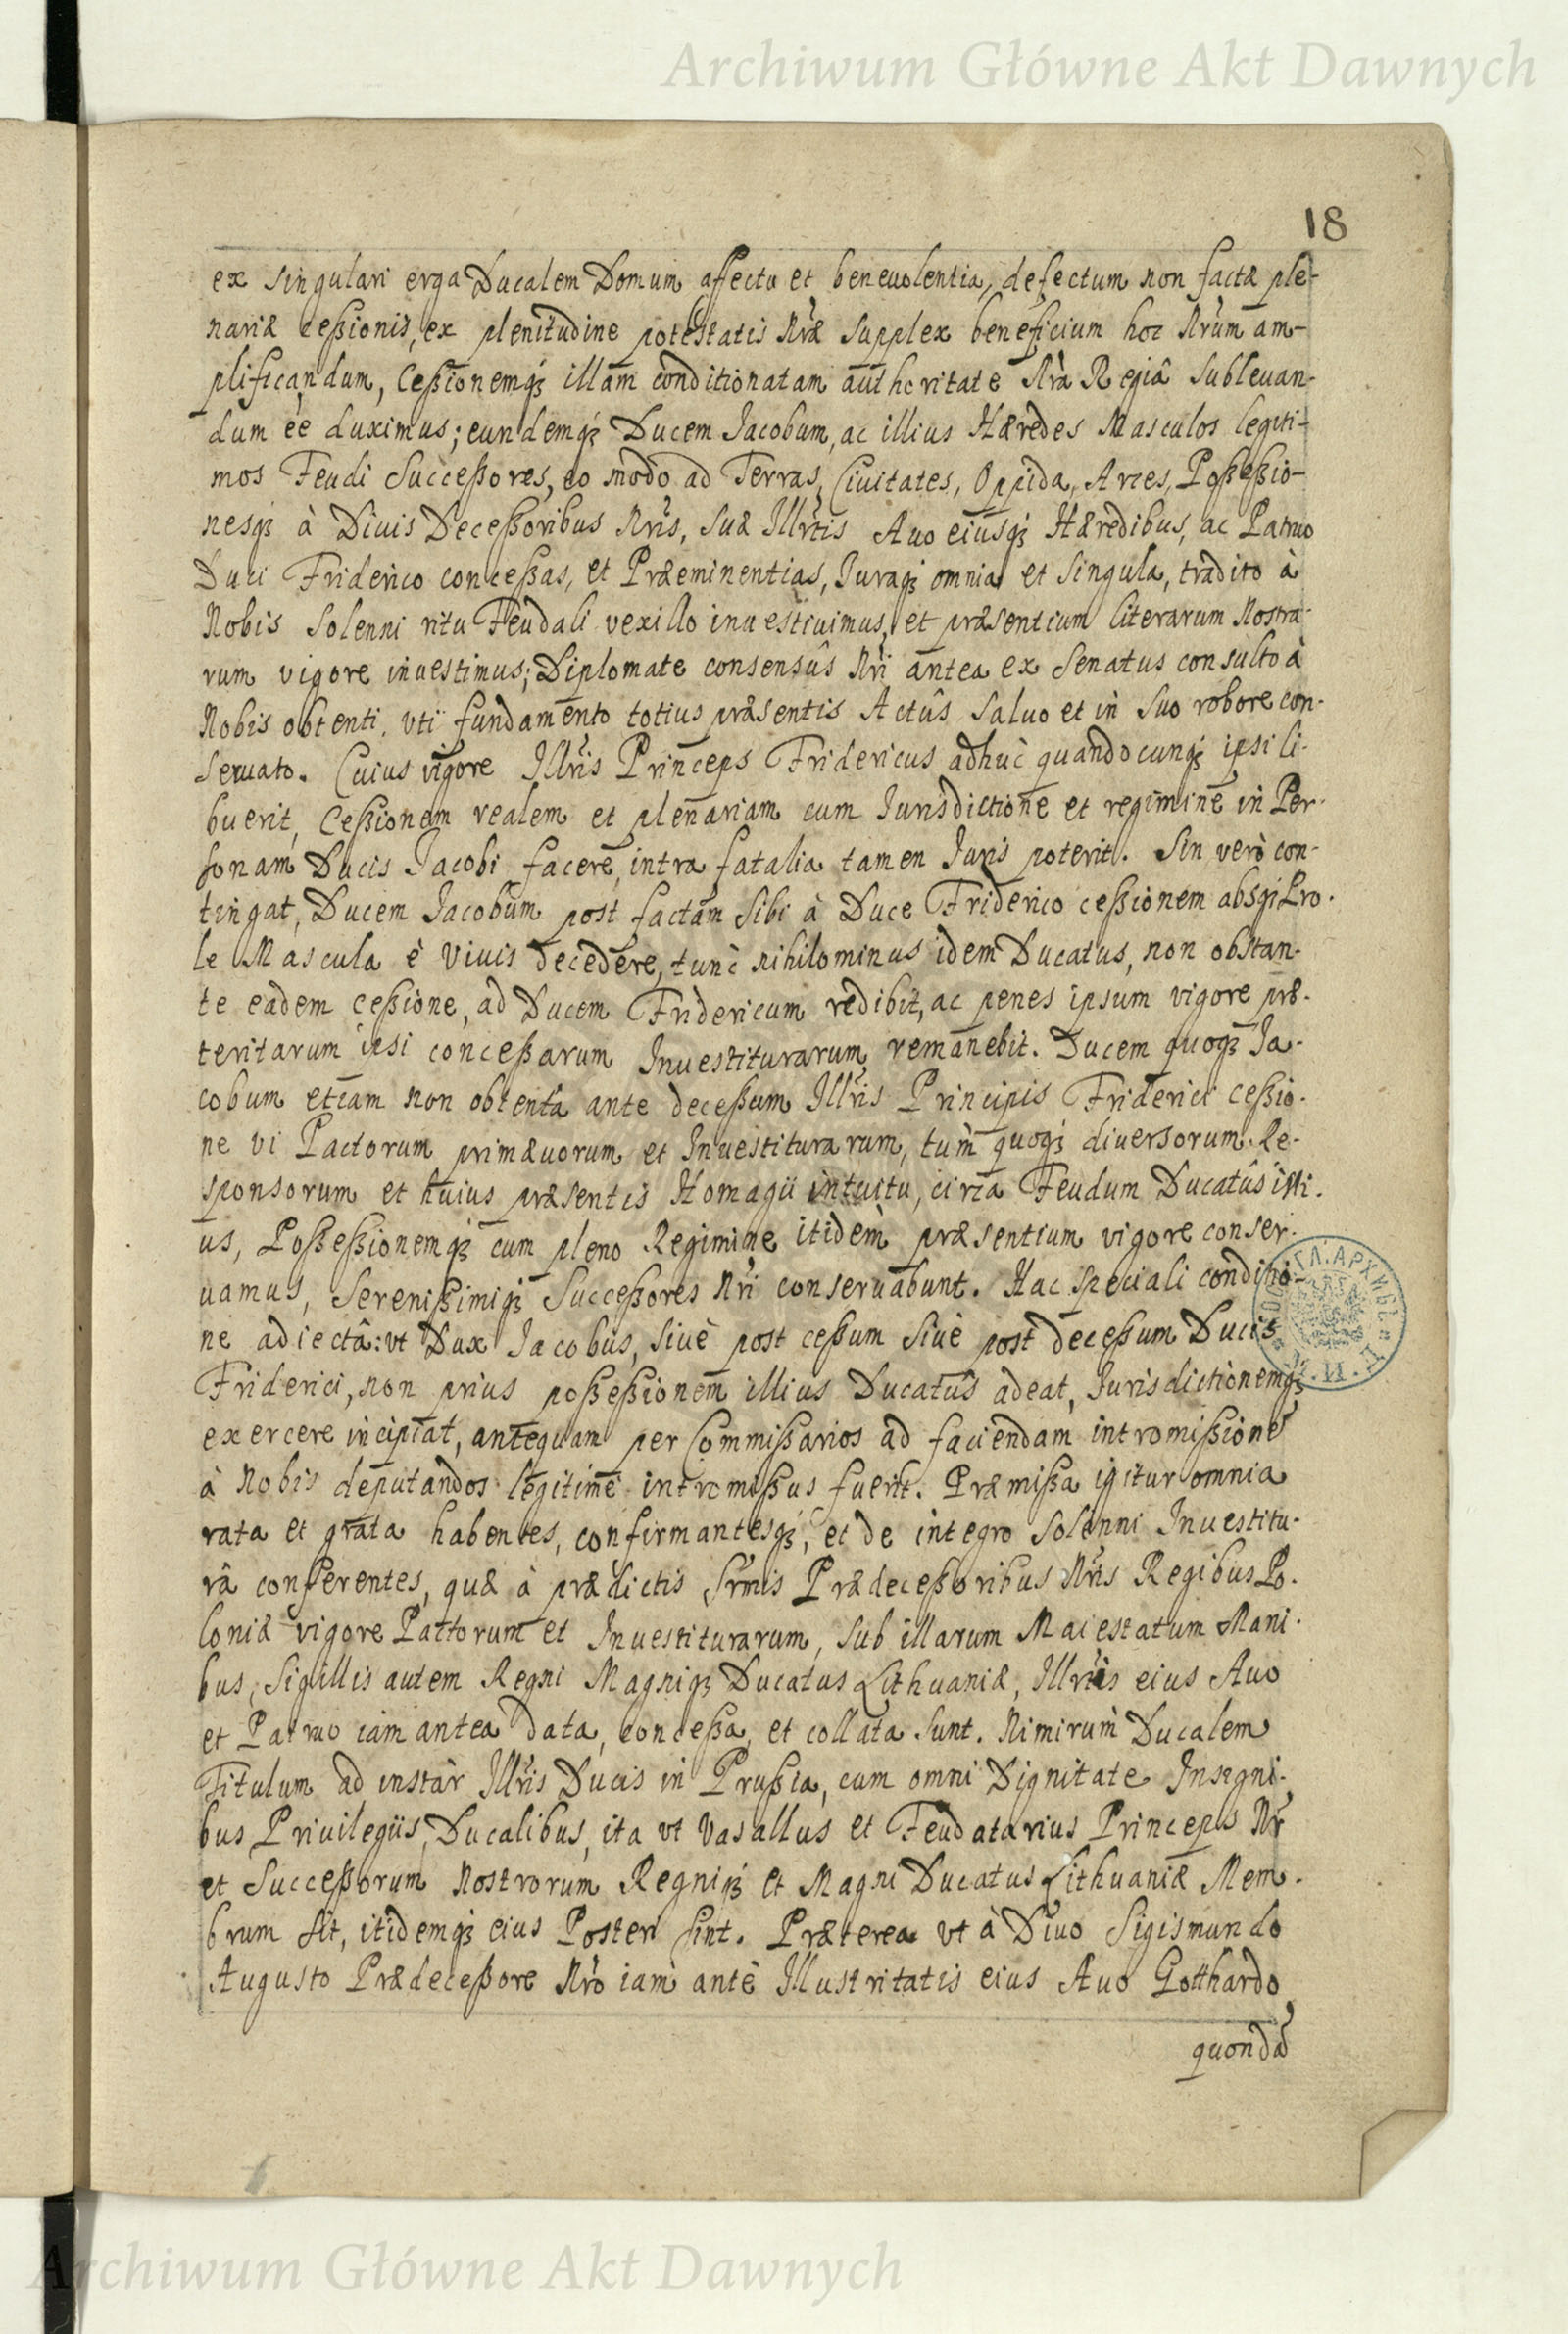 Archiwum Główne Akt Dawnych
18
ex singulari erga Ducalem Domum affectu et beneuolentia, defectum non factæ ple-
nariæ ceßionis, ex plenitudine potestatis Nræ supplex beneficium hoc Nrum am-
plificandum, Ceßionemq₃ illam conditionatam authoritate Nrà Regiâ subleuan-
dum ee duximus; eundemq₃ Ducem Jacobum, ac illius Hæredes Masculos legiti-
mos Feudi Succeßores, eo modò ad Terras, Ciuitates, Oppida, Arces, Poßeßio-
nesq₃ à Diuis Deceßoribus Nris, suæ Illrtis Auo eiusq₃ Hæredibus, ac Patruo
Duci Friderico conceßas, et Præeminentias, Juraq₃ omnia et singula, tradito à
Nobis solenni ritu Feudali vexillo inuestiuimus, et præsentium literarum Nostra-
rum vigore inuestimus; Diplomate consensûs Nri antea ex Senatus consulto à
Nobis obtenti, vti fundamento totius præsentis Actûs saluo et in suo robore con-
seruato. Cuius vigore Illris Princeps Fridericus adhuc quandocunq₃ ipsi li-
buerit, Ceßionem realem et plenariam cum Jurisdictione et regimine in Per-
sonam Ducis Jacobi facere, intra fatalia tamen Juris poterit. Sin verò con-
tingat, Ducem Jacobum post factam sibi à Duce Friderico ceßionem absq₃ Pro-
le Mascula è viuis decedere, tunc nihilominus idem Ducatus, non obstan-
te eadem ceßione, ad Ducem Fridericum redibit, ac penes ipsum vigore præ-
teritarum ipsi conceßarum Inuestiturarum remanebit. Ducem quoq₃ Ja-
cobum etiam non obtenta ante deceßum Illris Principis Friderici ceßio-
ne vi Pactorum primæuorum et Inuestiturarum, tum quoq₃ diuersorum Re-
sponsorum et huius præsentis Homagii intuitu, circa Feudum Ducatûs illi-
us, Poßeßionemq₃ cum pleno Regimine itidem præsentium vigore conser-
uamus, Serenißimiq₃ Succeßores Nri conseruabunt. Hac speciali conditio-
ne adiectâ: vt Dux Jacobus, siuè post ceßum siuè post deceßum Ducis
Friderici, non prius poßeßionem illius Ducatus adeat, Jurisdictionemq₃
exercere incipiat, antequam per Commißarios ad faciendam intromißionē
à Nobis deputandos legitimè intromißus fuerit. Præmißa igitur omnia
rata et grata habentes, confirmantesq₃, et de integro solenni Inuestitu-
râ conferentes, quæ à prædictis Srmis Prædeceßoribus Nris Regibus Po-
loniæ vigore Pactorum et Inuestiturarum, sub illarum Maiestatum Mani-
bus, Sigillis autem Regni Magniq₃ Ducatus Lithuaniæ, Illris eius Auo
et Patruo iam antea data, conceßa, et collata sunt. Nimirum Ducalem
Titulum ad instar Illris Ducis in Prußia, cum omni Dignitate Insigni-
bus Priuilegiis Ducalibus, ita vt Vasallus et Feudatarius Princeps Nr
et Succeßorum Nostrorum Regniq₃ et Magni Ducatus Lithuaniæ Mem-
brum sit, itidemq₃ eius Posteri sint. Præterea vt à Diuo Sigismundo
Augusto Prædeceßore Nro iam antè Illustritatis eius Auo Gotthardo
quondā
Archiwum Główne Akt Dawnych